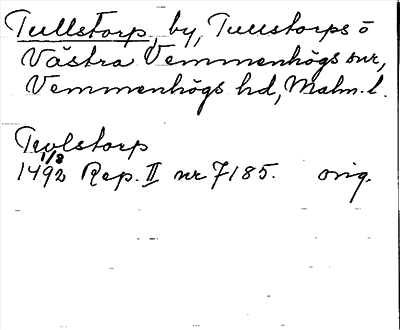 Tullstorp, by, Tullstorps o
Västra Vemmenhögs snr,
Vemmenhögs hd, Malm. l.
Trolstorp
1492 1/8 Rep. II nr 7185. orig.